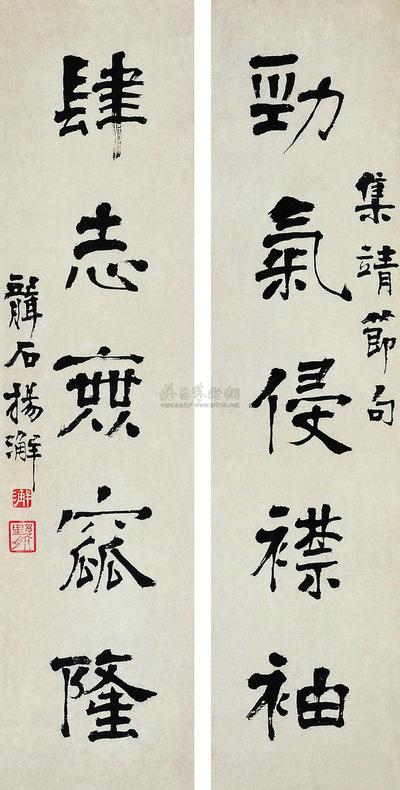 集靖節句
勁氣侵襟袖
肆志無窊隆
聾石楊澥